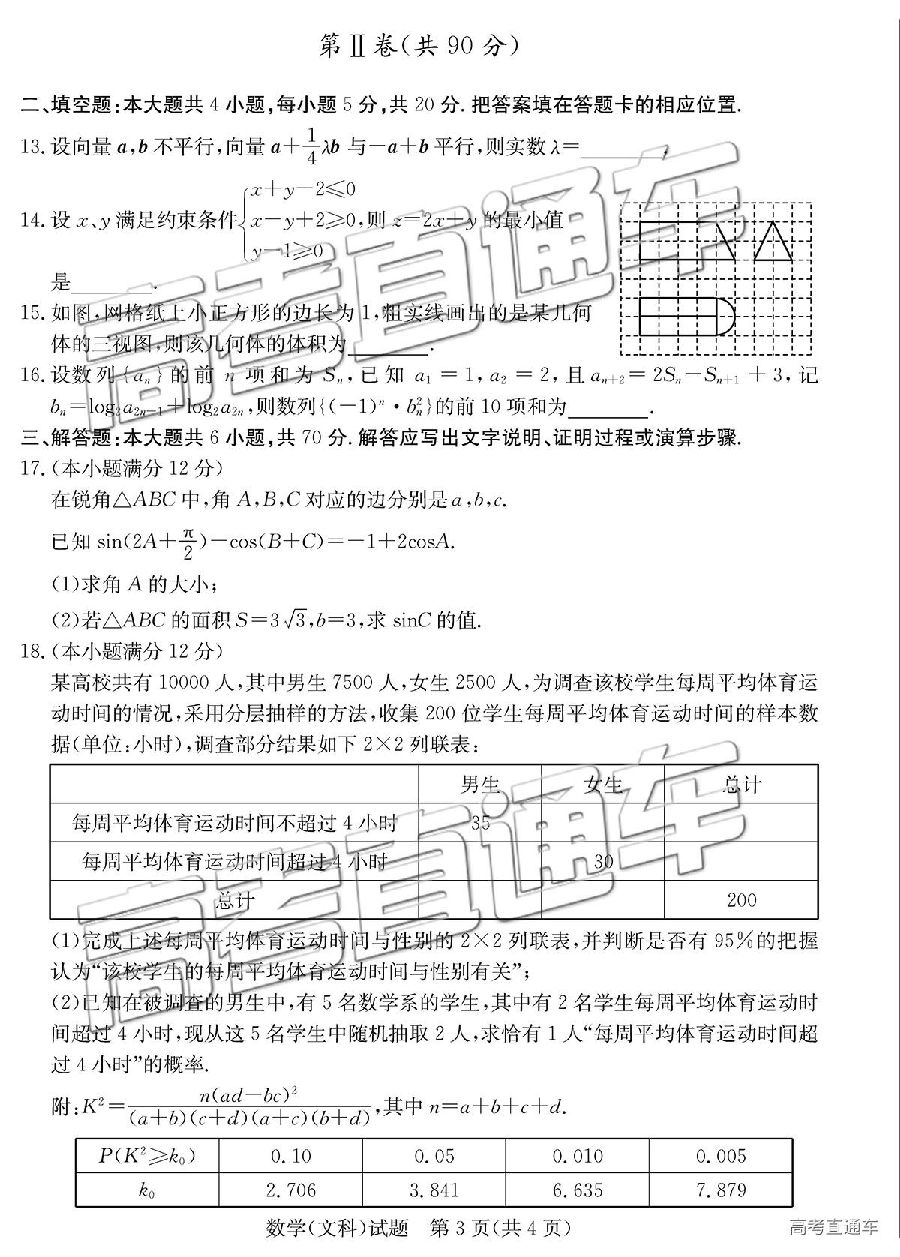 第Ⅱ卷(共 90 分)
二、填空题:本大题共 4 小题,每小题 5 分,共 20 分. 把答案填在答题卡的相应位置.
13. 设向量 a,b 不平行,向量 a+1/4λb 与-a+b 平行,则实数 λ=________.
14. 设 x、y 满足约束条件{x+y-2≤0
x-y+2≥0,则 z=2x-y 的最小值
y-1≥0
是________.
15. 如图,网格纸上小正方形的边长为 1,粗实线画出的是某几何
体的三视图,则该几何体的体积为________.
16. 设数列{aₙ}的前 n 项和为 Sₙ,已知 a₁ = 1, a₂ = 2, 且 aₙ₊₂ = 2Sₙ-Sₙ₊₁ + 3, 记
bₙ=log₂a₂ₙ₋₁+log₂a₂ₙ,则数列{(-1)ⁿ·bₙ²}的前 10 项和为________.
三、解答题:本大题共 6 小题,共 70 分. 解答应写出文字说明、证明过程或演算步骤.
17. (本小题满分 12 分)
在锐角△ABC 中,角 A,B,C 对应的边分别是 a,b,c.
已知 sin(2A+π/2)-cos(B+C)=-1+2cosA.
(1)求角 A 的大小;
(2)若△ABC 的面积 S=3√3,b=3,求 sinC 的值.
18. (本小题满分 12 分)
某高校共有 10000 人,其中男生 7500 人,女生 2500 人,为调查该校学生每周平均体育运
动时间的情况,采用分层抽样的方法,收集 200 位学生每周平均体育运动时间的样本数
据(单位:小时),调查部分结果如下 2×2 列联表:
男生 女生 总计
每周平均体育运动时间不超过 4 小时 35
每周平均体育运动时间超过 4 小时 30
总计 200
(1)完成上述每周平均体育运动时间与性别的 2×2 列联表,并判断是否有 95%的把握
认为“该校学生的每周平均体育运动时间与性别有关”;
(2)已知在被调查的男生中,有 5 名数学系的学生,其中有 2 名学生每周平均体育运动时
间超过 4 小时,现从这 5 名学生中随机抽取 2 人,求恰有 1 人“每周平均体育运动时间超
过 4 小时”的概率.
附:K²=n(ad-bc)²/(a+b)(c+d)(a+c)(b+d),其中 n=a+b+c+d.
P(K²≥k₀) 0.10 0.05 0.010 0.005
k₀ 2.706 3.841 6.635 7.879
数学(文科)试题 第 3 页(共 4 页)
高考直通车
高考直通车
高考直通车